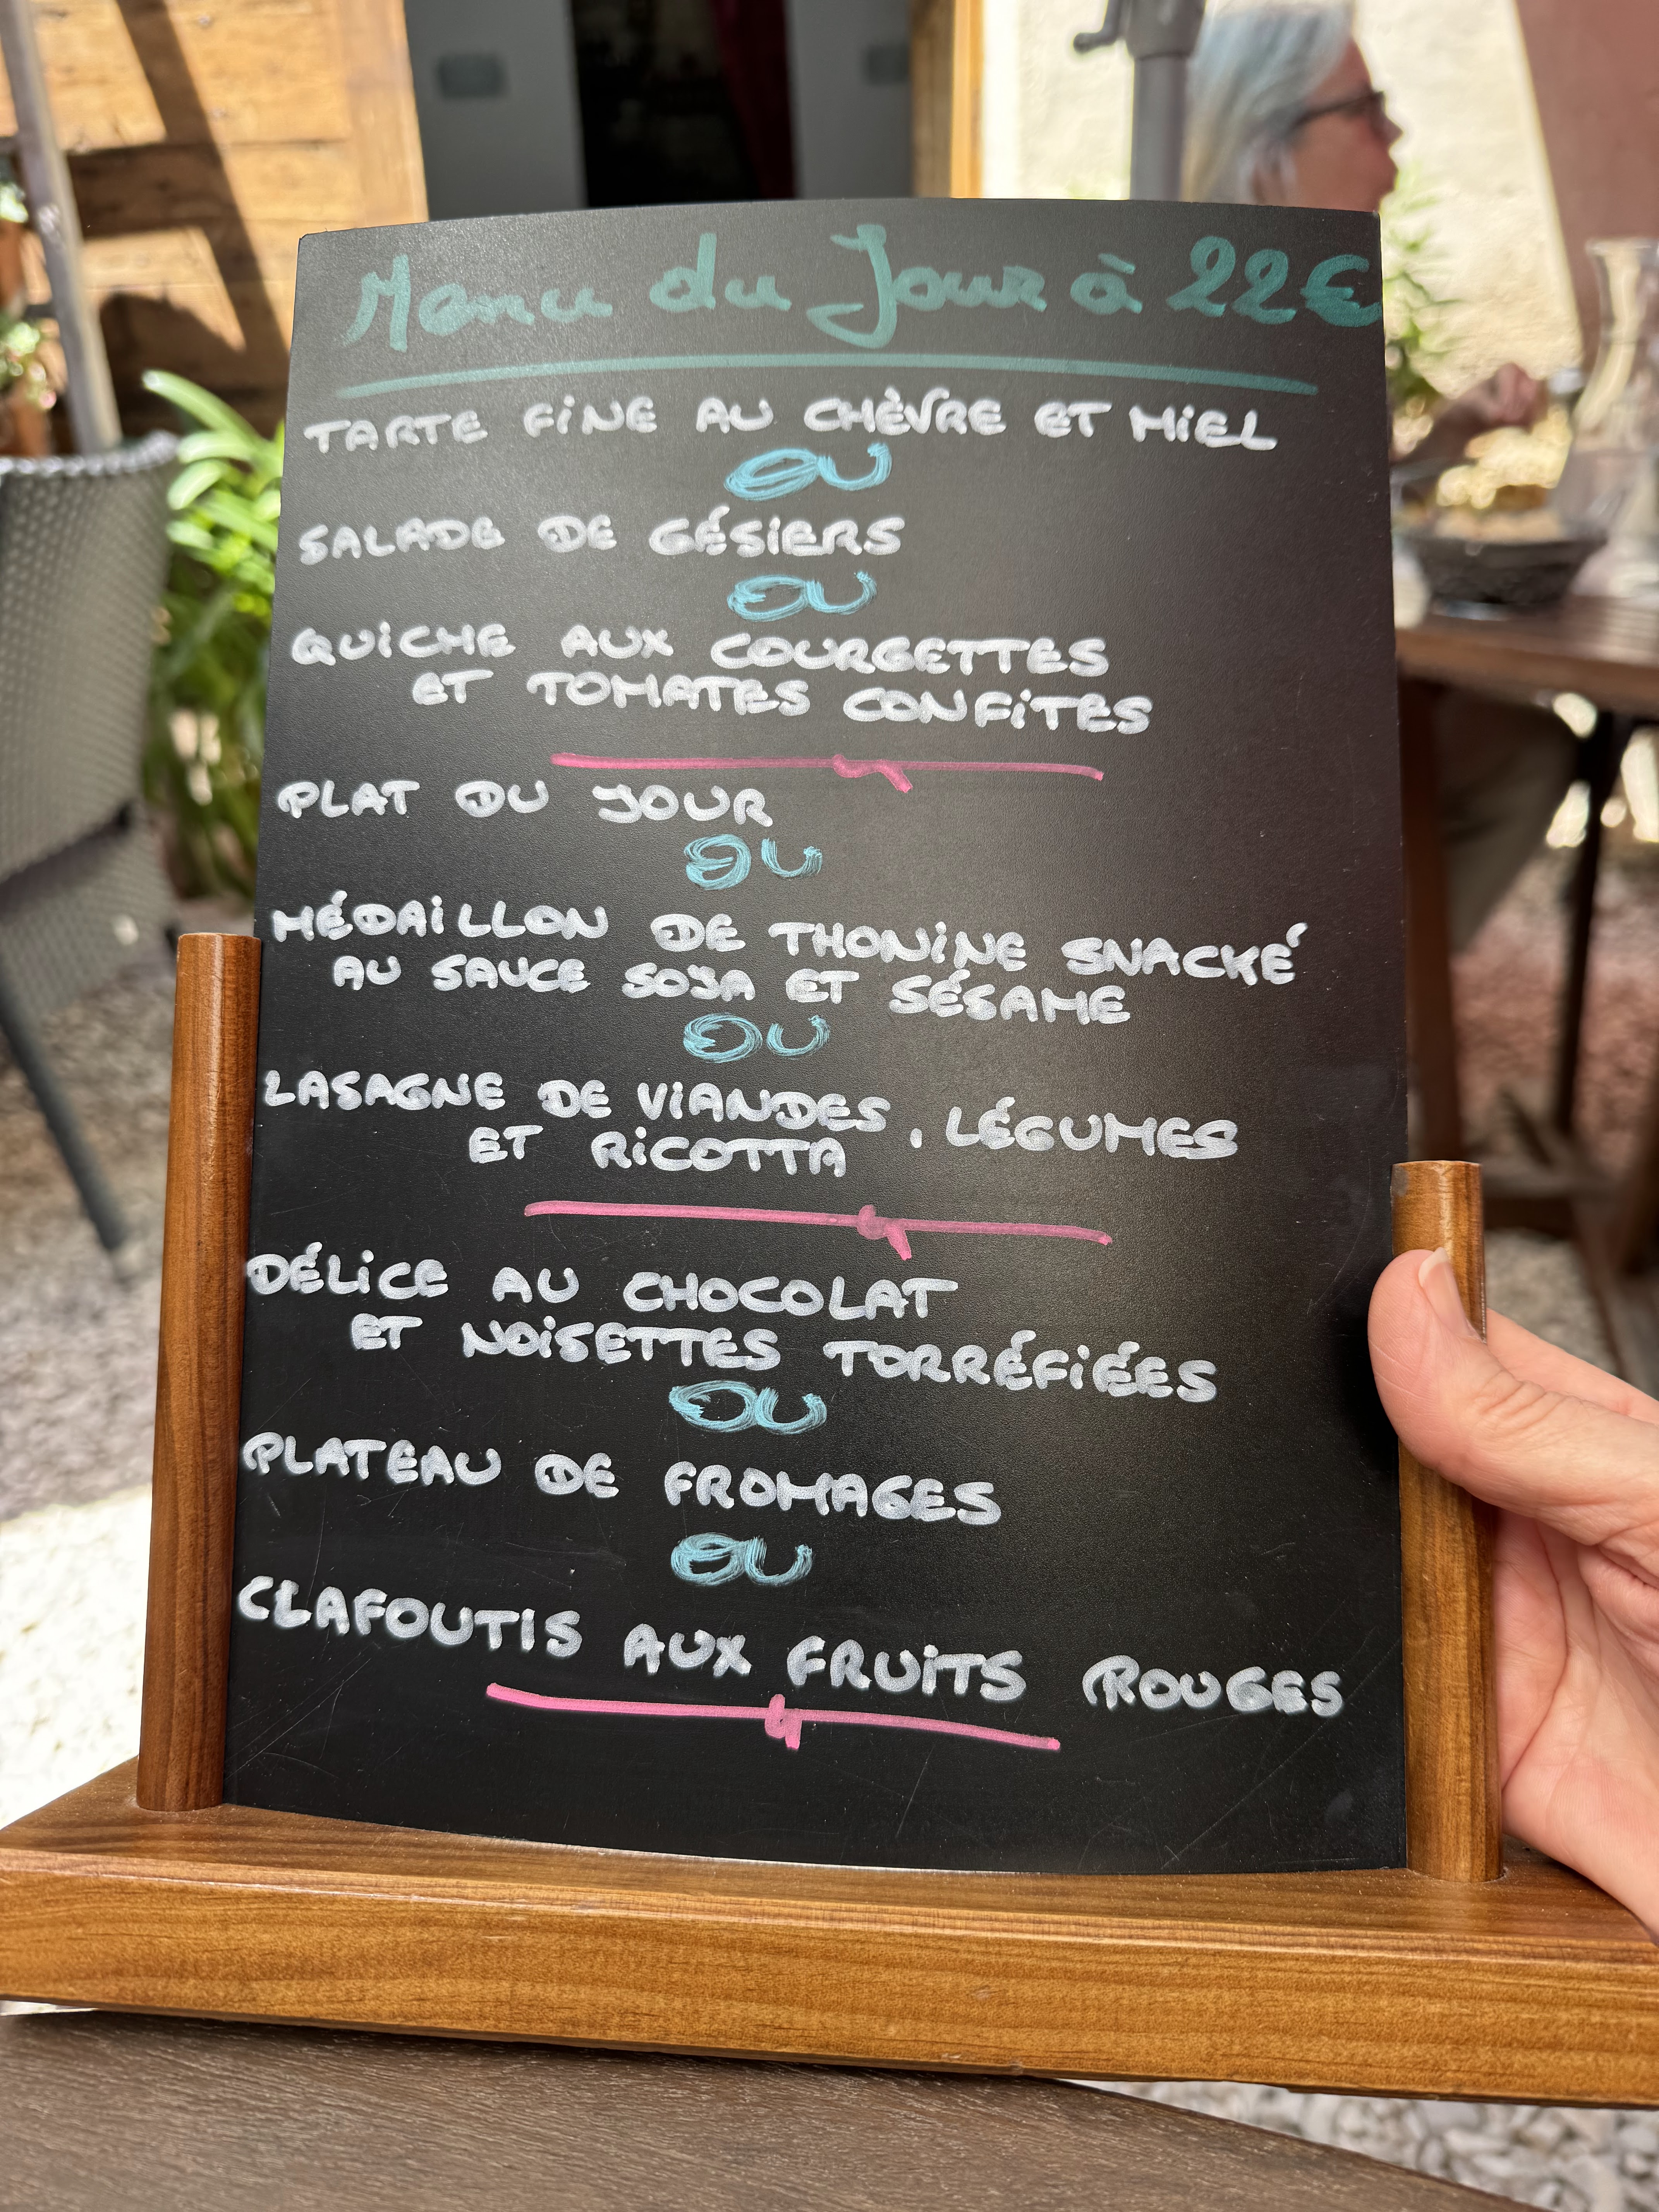 Menu du Jour à 22€
TARTE FINE AU CHÈVRE ET MIEL
OU
SALADE DE GÉSIERS
OU
QUICHE AUX COURGETTES
ET TOMATES CONFITES
PLAT DU JOUR
OU
MÉDAILLON DE THONINE SNACKÉ
AU SAUCE SOJA ET SÉSAME
OU
LASAGNE DE VIANDES, LÉGUMES
ET RICOTTA
DÉLICE AU CHOCOLAT
ET NOISETTES TORRÉFIÉES
OU
PLATEAU DE FROMAGES
OU
CLAFOUTIS AUX FRUITS ROUGES